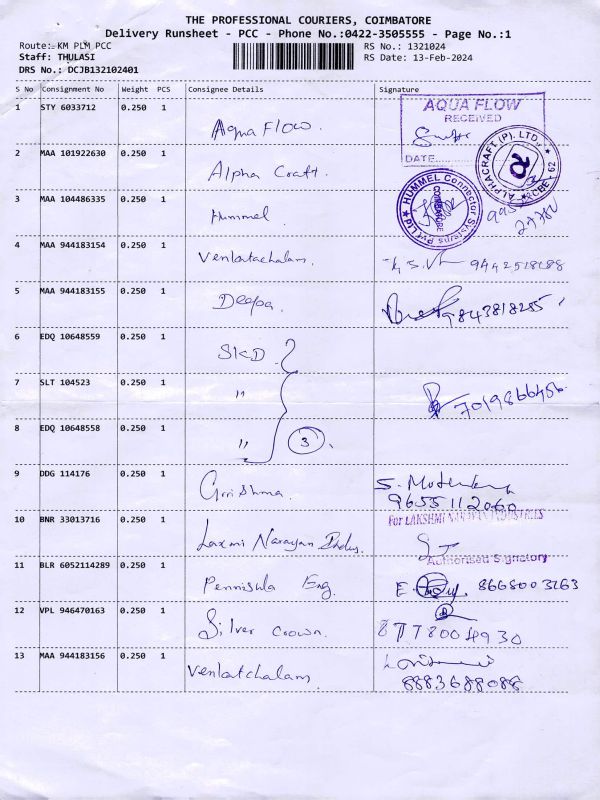 THE PROFESSIONAL COURIERS, COIMBATORE
Delivery Runsheet - PCC - Phone No.:0422-3505555 - Page No.:1
Route: KM PLM PCC
RS No.: 1321024
Staff: THULASI
RS Date: 13-Feb-2024
DRS No.: DCJB132102401
S No Consignment No Weight PCS Consignee Details Signature
1 STY 6033712 0.250 1 Aqua Flow.
AQUA FLOW
RECEIVED
DATE
ALPHACRAFT (P). LTD.,
2 MAA 101922630 0.250 1 Alpha Craft.
HUMMEL Connector Systems Pvt Ltd
COIMBATORE
3 MAA 104486335 0.250 1 Hummel
4 MAA 944183154 0.250 1 Venkatachalam.
5 MAA 944183155 0.250 1 Deepa. 9843818255
6 EDQ 10648559 0.250 1 SKD
7 SLT 104523 0.250 1 " 7019866456
8 EDQ 10648558 0.250 1 " 3
9 DDG 114176 0.250 1 Grishma.
9655112060
10 BNR 33013716 0.250 1 Laxmi Narayan Indus.
For LAKSHMI NARAYAN INDUSTRIES
Authorised Signatory
11 BLR 6052114289 0.250 1 Pennisula Eng. 8668003263
12 VPL 946470163 0.250 1 Silver Crown. 8778004930
13 MAA 944183156 0.250 1 Venkatchalam
8883688088